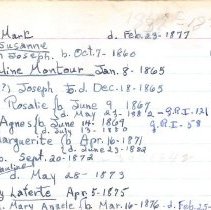 Mark d. Feb. 23-1877
Susanne
n Joseph b. Oct. 7- 1860
line Montour Jan. 8- 1865
?) Joseph b.d. Dec. 18- 1865
Rosalie b June 9 1867
d. May 23-1882 - G.R.I-
Agnes b June 14 1869
d July 13- 1880 G.R.I-58
arguerite b Apr. 16-187
d. May 23-
b. Sept. 20-1872
d. May 28- 1873
y Laferte Apr. 5-1875
. Mary Angele b Mar. 16-1876 d. Feb. 25-